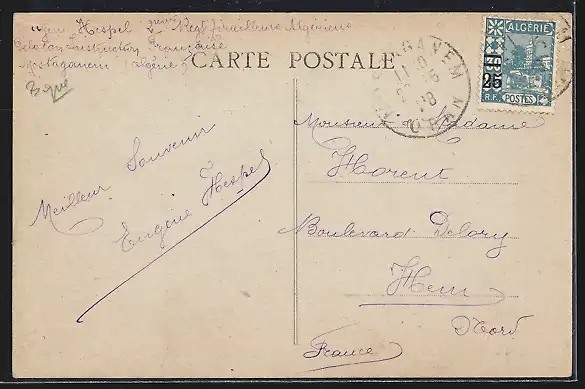 Hespel 2ème Regt Tirailleurs Algériens
Peloton Instruction Française
Mostaganem Algérie
CARTE POSTALE
ALGÉRIE
25
R.F. POSTES
Meilleur Souvenir
Eugène Hespel
Monsieur & Madame
Florent
Boulevard Delory
Hem
Nord
France